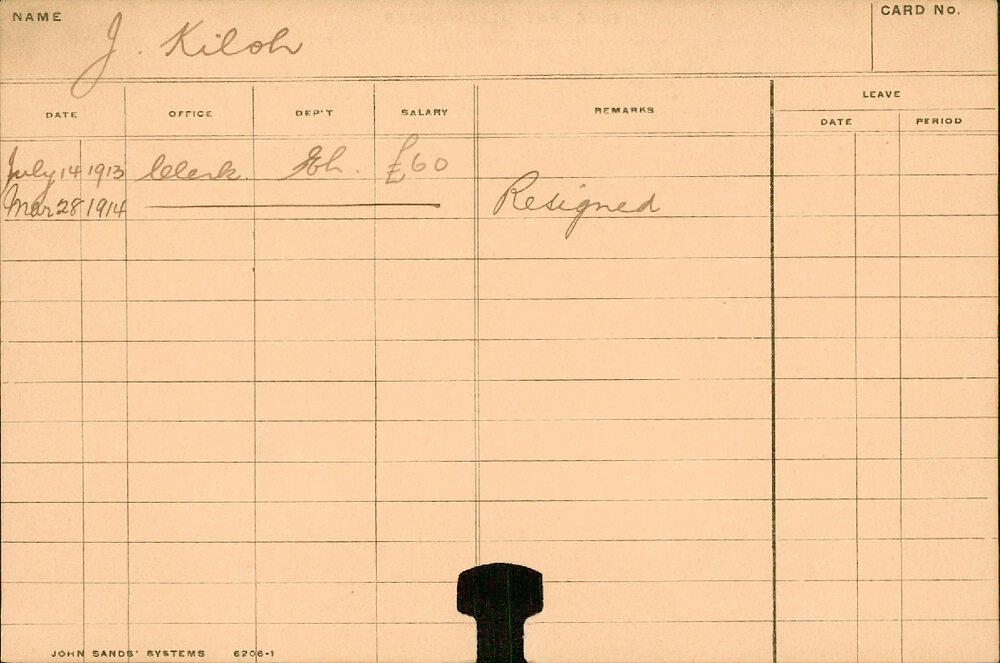 NAME J. Kiloh CARD No.
DATE OFFICE DEP'T SALARY REMARKS LEAVE
DATE PERIOD
July 14 1913 Clerk. £60
Mar 28 1914 Resigned
JOHN SANDS' SYSTEMS 6206-1